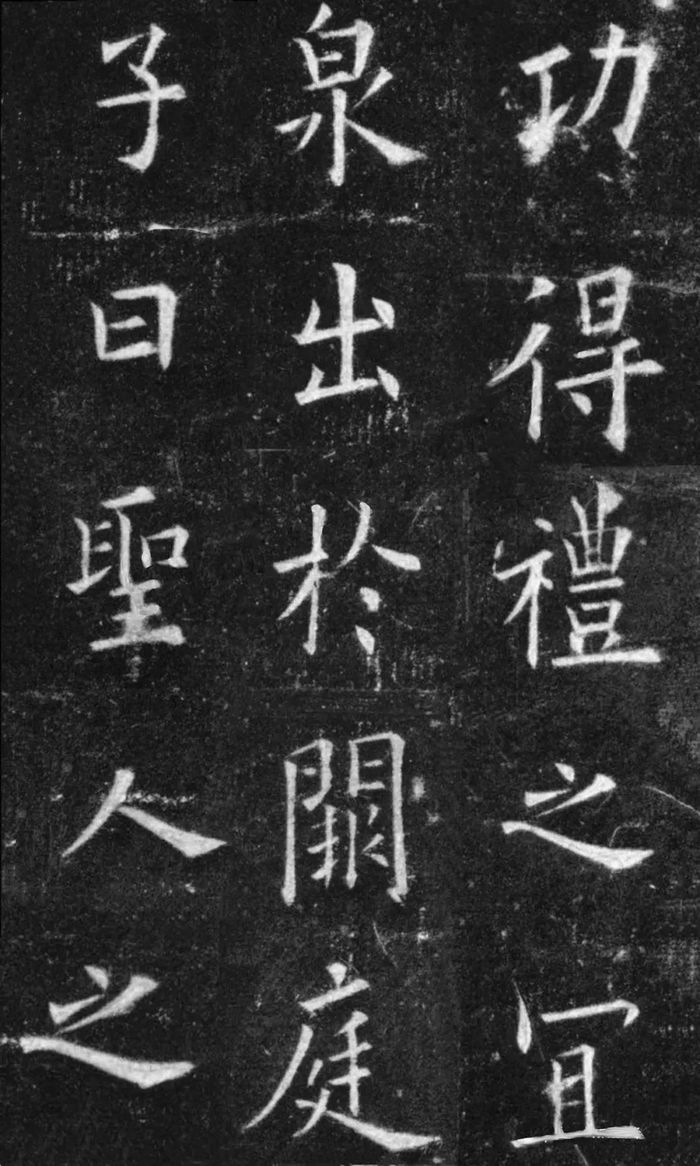 功得禮之宜
泉出於闕庭
子曰聖人之